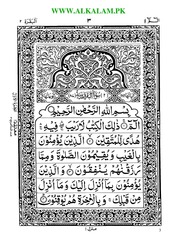 WWW.ALKALAM.PK
٣
بِسْمِ اللهِ الرَّحْمٰنِ الرَّحِيْمِ
الٓمّٓ ۚ ذٰلِكَ الْكِتٰبُ لَا رَيْبَ ۛ فِيْهِ ۛ
هُدًى لِّلْمُتَّقِيْنَ الَّذِيْنَ يُؤْمِنُوْنَ
بِالْغَيْبِ وَيُقِيْمُوْنَ الصَّلٰوةَ وَمِمَّا
رَزَقْنٰهُمْ يُنْفِقُوْنَ وَالَّذِيْنَ
يُؤْمِنُوْنَ بِمَآ اُنْزِلَ اِلَيْكَ وَمَآ اُنْزِلَ
مِنْ قَبْلِكَ وَبِالْاٰخِرَةِ هُمْ يُوْقِنُوْنَ
منزل ١